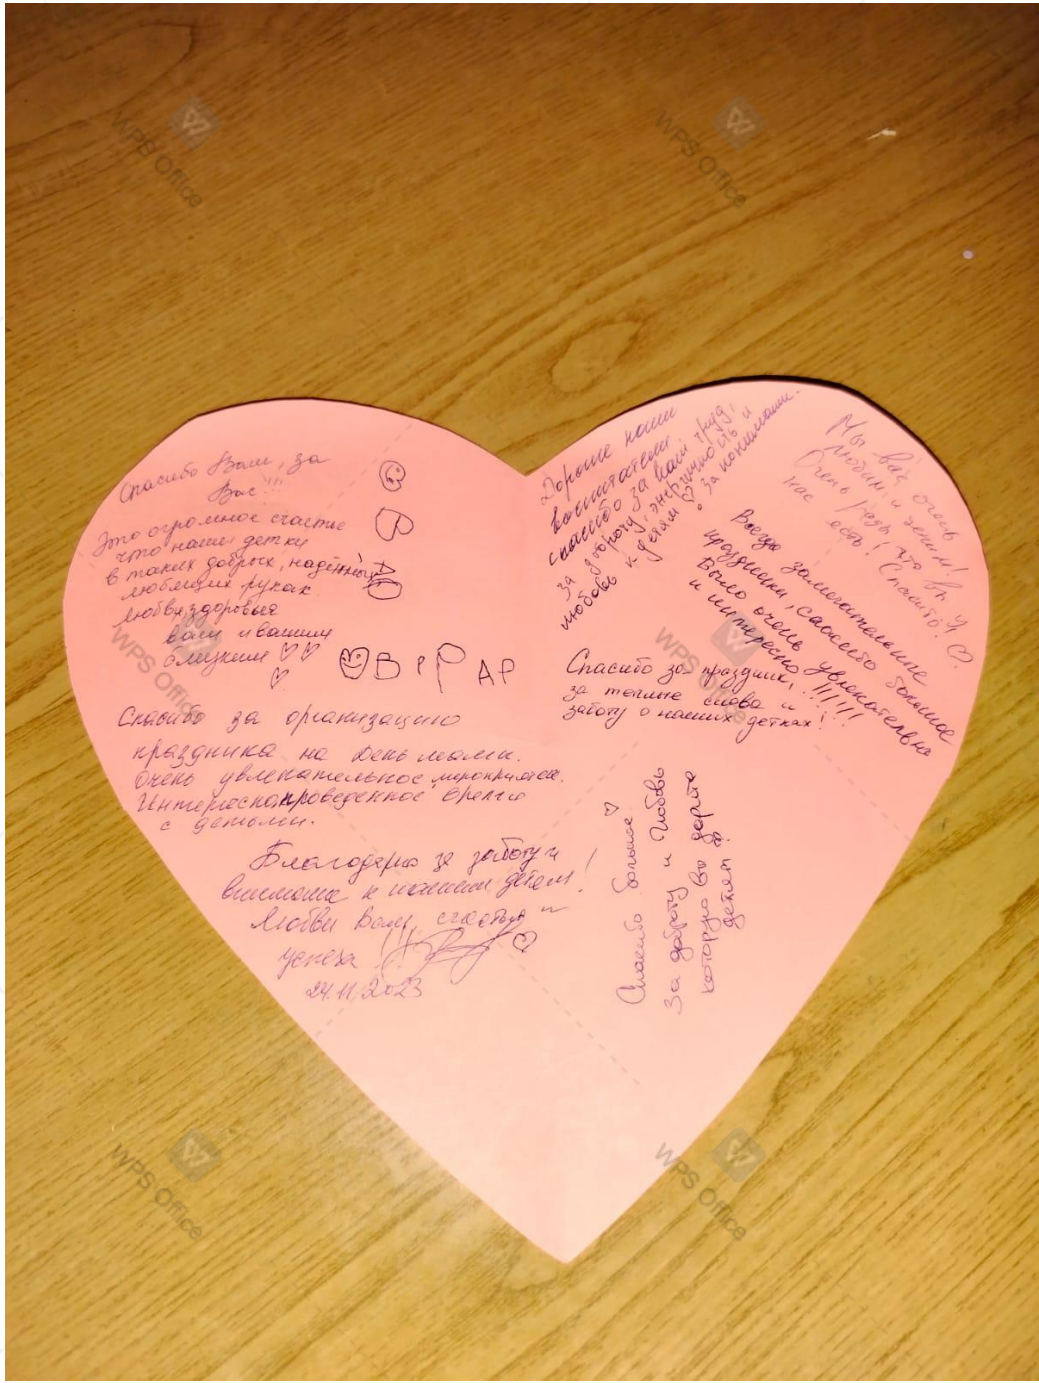 Спасибо Вам, за
Вас!!!
Это огромное счастье
что наши детки
в таких добрых, надёжных
любящих руках
Любви, здоровья
вам и вашим
близким
Спасибо за организацию
праздника на День мамы.
Очень увлекательное мероприятие.
Интересно проведенное время
с детьми.
Благодарю за заботу и
внимание к нашим детям!
Любви Вам, счастья и
успеха!!!
24.11.2023
Дорогие наши
воспитатели
спасибо за ваш труд,
за доброту, энергичность и
любовь к детям
за понимание.
Мы вас очень
любим и ценим!
Очень рады, что вы у
нас есть! Спасибо!
Всегда замечательные
праздники, спасибо большое
Было очень увлекательно
и интересно!!!!!!
Спасибо за праздник,
за теплые слова и
заботу о наших детках!
Спасибо большое
За доброту и Любовь
которую вы дарите
детям
WPS Office
WPS Office
WPS Office
WPS Office
WPS Office
WPS Office